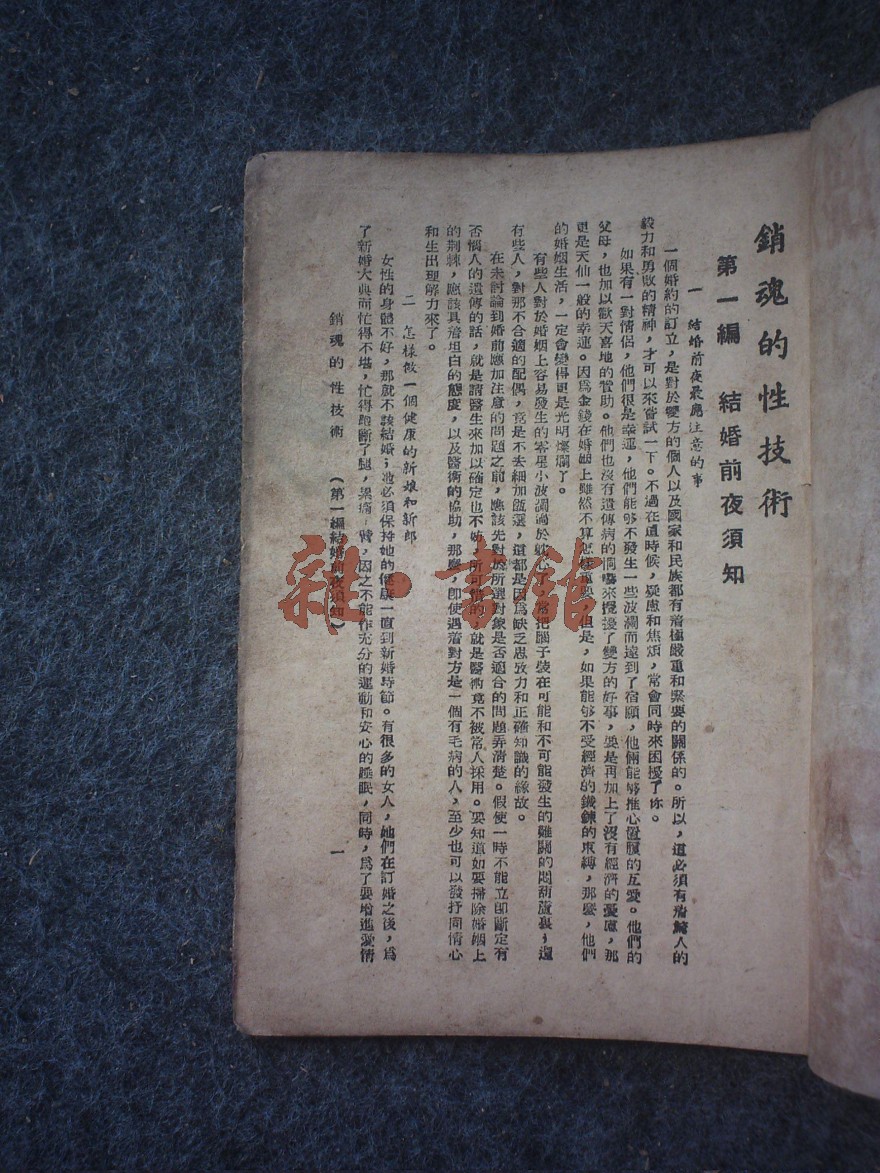 銷魂的性技術
第一編 結婚前夜須知
一 結婚前夜最應注意的事
一個婚約的訂立，是對於雙方的個人以及國家和民族都有着極嚴重和緊要的關係的。所以，這必須有着驚人的
毅力和勇敢的精神，才可以來嘗試一下。不過在這時候，疑慮和焦煩，常會同時來困擾了你。
如果有一對情侶，他們很是幸運，他們能够不發生一些波瀾而達到了宿願，他倆能够推心置腹的互愛。他們的
父母，也加以歡天喜地的贊助。他們也沒有遺傳病的恫嚇來擾擾了雙方的好事，要是再加上了沒有經濟的憂慮，那
更是天仙一般的幸運。因爲金錢在婚姻上雖然不算怎樣重要，但是，如果能够不受經濟的鐵鍊的束縛，那麼，他們
的婚姻生活，一定會變得更是光明燦爛了。
有些人對於婚姻上容易發生的零星小波瀾過於躭心了，常把腦子裝在可能和不可能發生的難關的悶葫蘆裏，還
有些人，對那不合適的配偶，竟是不去細加甄選，這都是因爲缺乏思致力和正確知識的緣故。
在未討論到婚前應加注意的問題之前，應該先對於所選對象是否適合的問題弄清楚。假使一時不能立即斷定有
否惱人的遺傳的話，就是請醫生來加以確定也不妨，所可惜的，就是醫術竟不被常人採用。要知道如要掃除婚姻上
的荆棘，應該具着坦白的態度，以及醫術的協助，那麼，即使遇着對方是一個有毛病的人，至少也可以發抒同情心
和生出理解力來了。
二 怎樣做一個健康的新娘和新郎
女性的身體不好，那就不該結婚；她必須保持她的健康一直到新婚時節。有很多的女人，她們在訂婚之後，爲
了新婚大典而忙得不堪，忙得跑斷了腿，累痛 臂，因之不能作充分的運動和安心的睡眠，同時，爲了要增進愛情
銷魂的性技術 （第一編結婚前夜須知） 一
雜·書館